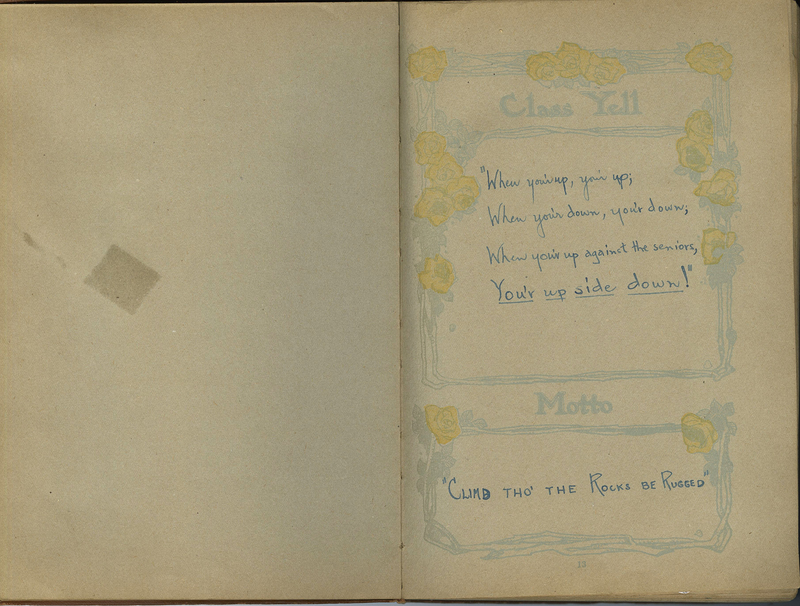 Class Yell
"When you'r up, you'r up;
When you'r down, you'r down;
When you'r up against the seniors,
You'r up side down!"
Motto
"Climb tho' the Rocks be Rugged"
13